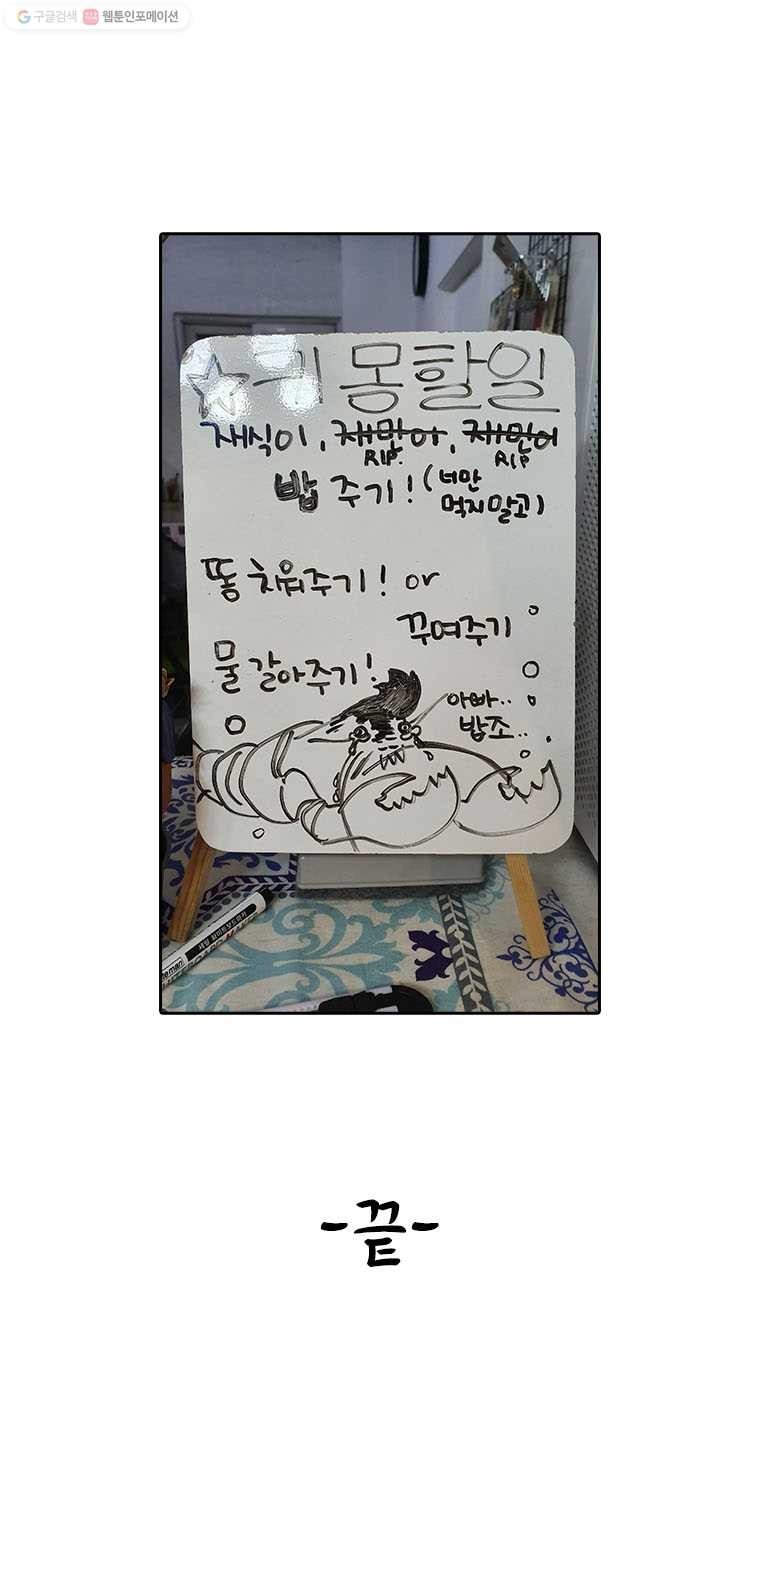 구글검색 웹툰인포메이션
몽할일
재식이, 재만이, 재만이
RIP. RIP
밥 주기! (너만
먹지말고)
똥 치워주기! or
꾸며주기
물 갈아주기!
아빠..
밥조..
세일 화이트보드마카
-끝-